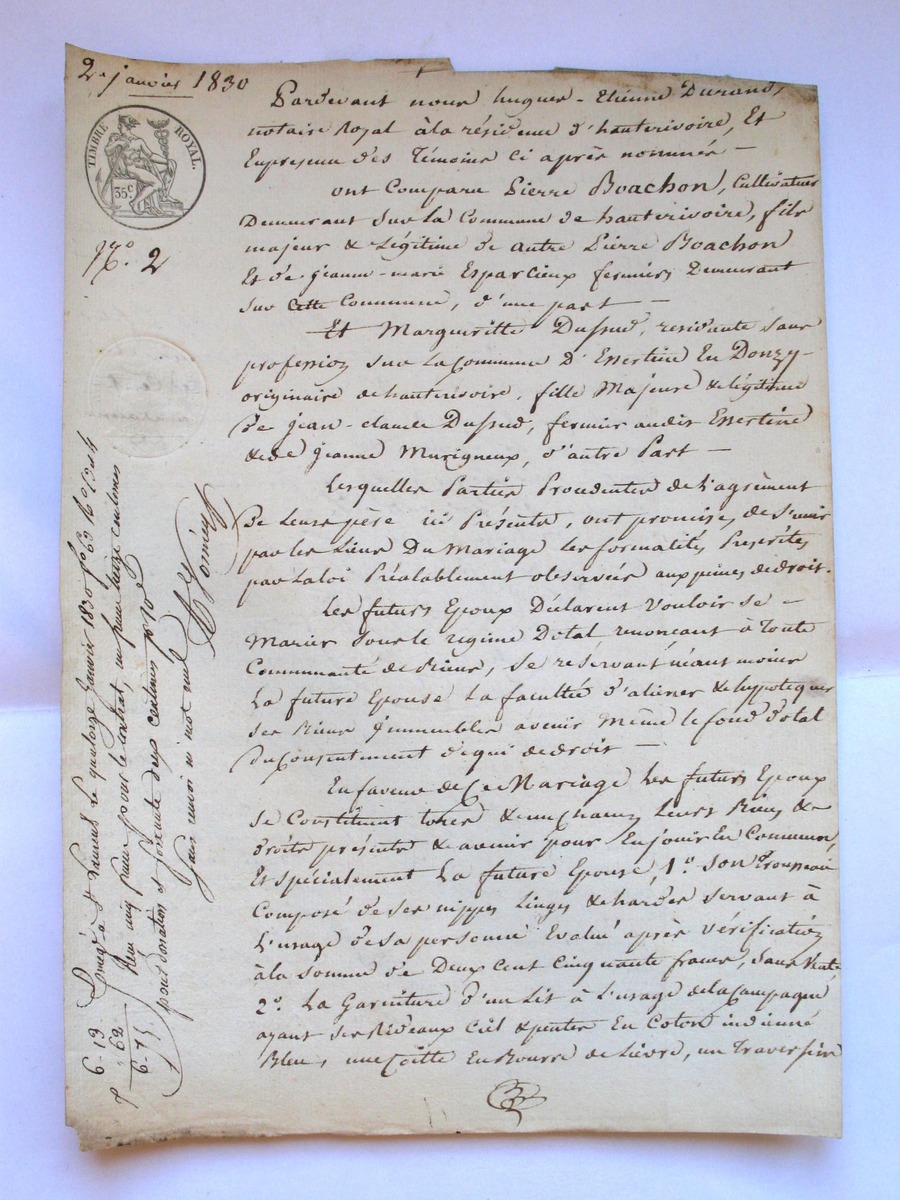 2 janvier 1830
TIMBRE ROYAL.
35 c.
N.o 2
Pardevant nous hugues-Etienne Durand,
notaire Royal à la résidence d'hauterivoire, Et
En presence des Témoins ci après nommés —
ont Comparu Pierre Boachon, Cultivateur
Demeurant sur la Commune de hauterivoire, fils
majeur & Légitime de autre Pierre Boachon
Et de jeanne-marie Esparcieux fermiers Demeurant
sur Cette Commune, d'une part —
Et Margueritte Dussud, residante sans
profession sur la Commune d'Essertine En Donzy
originaire de hauterivoire, fille Majeure & légitime
De jean-claude Dussud, fermier audit Essertine
& de jeanne Murigneux, d'autre Part —
Lesquelles Parties Procedentes de l'agrément
De leurs père ici Présents, ont promis de s'unir
par les Liens Du Mariage les formalités Prescrites
par La loi Préalablement observées aux peines de droit.
Les futurs Epoux Déclarent Vouloir se —
Marier sous le regime Dotal renoncant à Toute
Communauté de Biens, se réservant néant moins
La future Epouse La faculté d'aliéner & hypotequer
ses Biens d'immeubles avenir même le fond dotal
Du Consentement de qui de droit —
En faveur de Ce Mariage Les futurs Epoux
se Constituent tous & un Chacun Leurs Biens &
droits présents & avenir pour En jouir En Commun,
Et spécialement La future Epouse, 1.o son Trousseau
Composé de ses nippes Linges & hardes servant à
L'usage de sa personne Evalué après Vérification
à la somme de Deux Cent Cinquante francs, sans Vente
2.o La Garniture d'un Lit à L'usage de la Campagne
ayant ses Rideaux Ciel & pentes En Coton indienné
Bleu, une Coitte En Bourre de Lièvre, un Traversier
Enreg. à St Laurent le quatorze janvier 1830 f.o 63 R.o C.es 4
Reçu cinq francs pour le contrat, un franc treize centimes
pour donation et soixante deux centimes pour 10e
sans renvoi ni mot nul
6-13
" 62
6-75